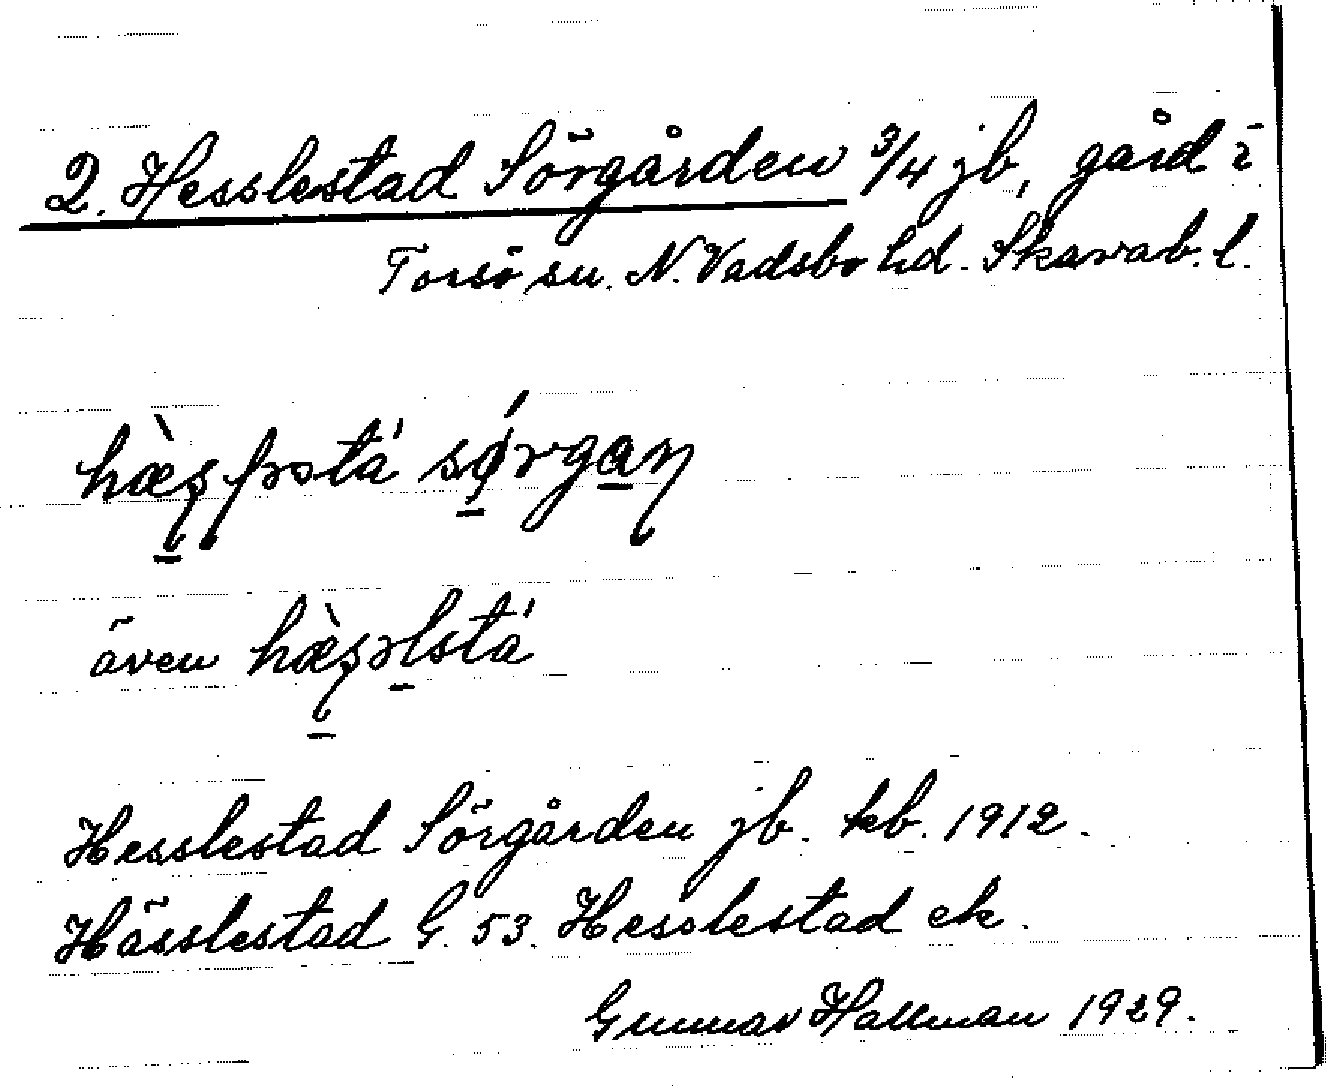 2. Hesslestad Sörgården 3/4 jb, gård i
Torsö sn. N. Vadsbo hd. Skarab. l.
även
Hesslestad Sörgården jb. kb. 1912.
Hässlestad G. 53. Hesslestad ek.
Gunnar Hallman 1929.